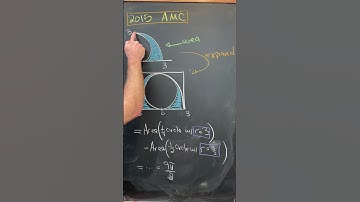 2015 AMC
3
area
expand
3
6
3
= Area(¼ circle w/ r=3)
- Area(½ circle w/ r=3/2)
= ... = 9π/8